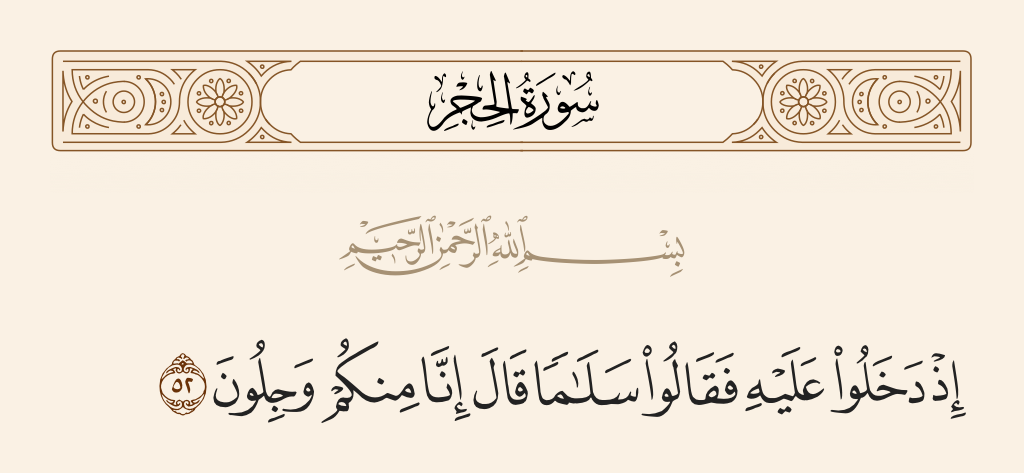 سُورَةُ الحِجْرِ
بِسْمِ ٱللَّهِ ٱلرَّحْمَٰنِ ٱلرَّحِيمِ
إِذْ دَخَلُوا۟ عَلَيْهِ فَقَالُوا۟ سَلَـٰمًا قَالَ إِنَّا مِنكُمْ وَجِلُونَ ٥٢